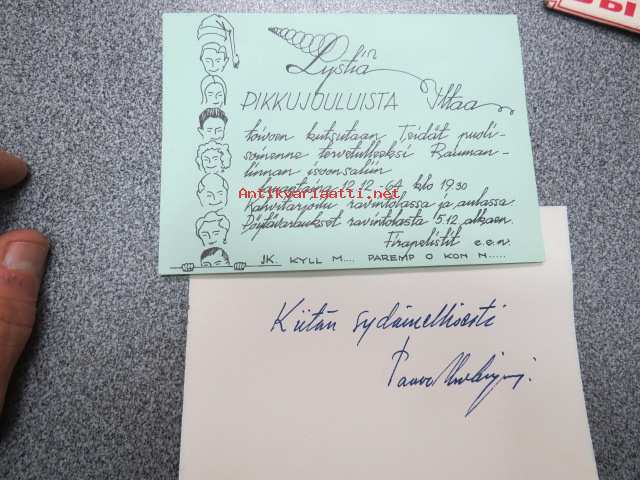 Lystiä
PIKKUJOULUISTA Iltaa
toivoen kutsutaan Teidät puoli-
soinenne tervetulleeksi Rauman-
linnan isoonsaliin
lauantaina 12.12 -64 klo 19.30
Antikvariaatti.net
Kahvitarjoilu ravintolassa ja aulassa.
Pöytävaraukset ravintolasta 5.12. alkaen.
Firapelistit e.e.n.
JK. KYLL M.... PAREMP O KON N.....
Kiitän sydämellisesti
Paavo